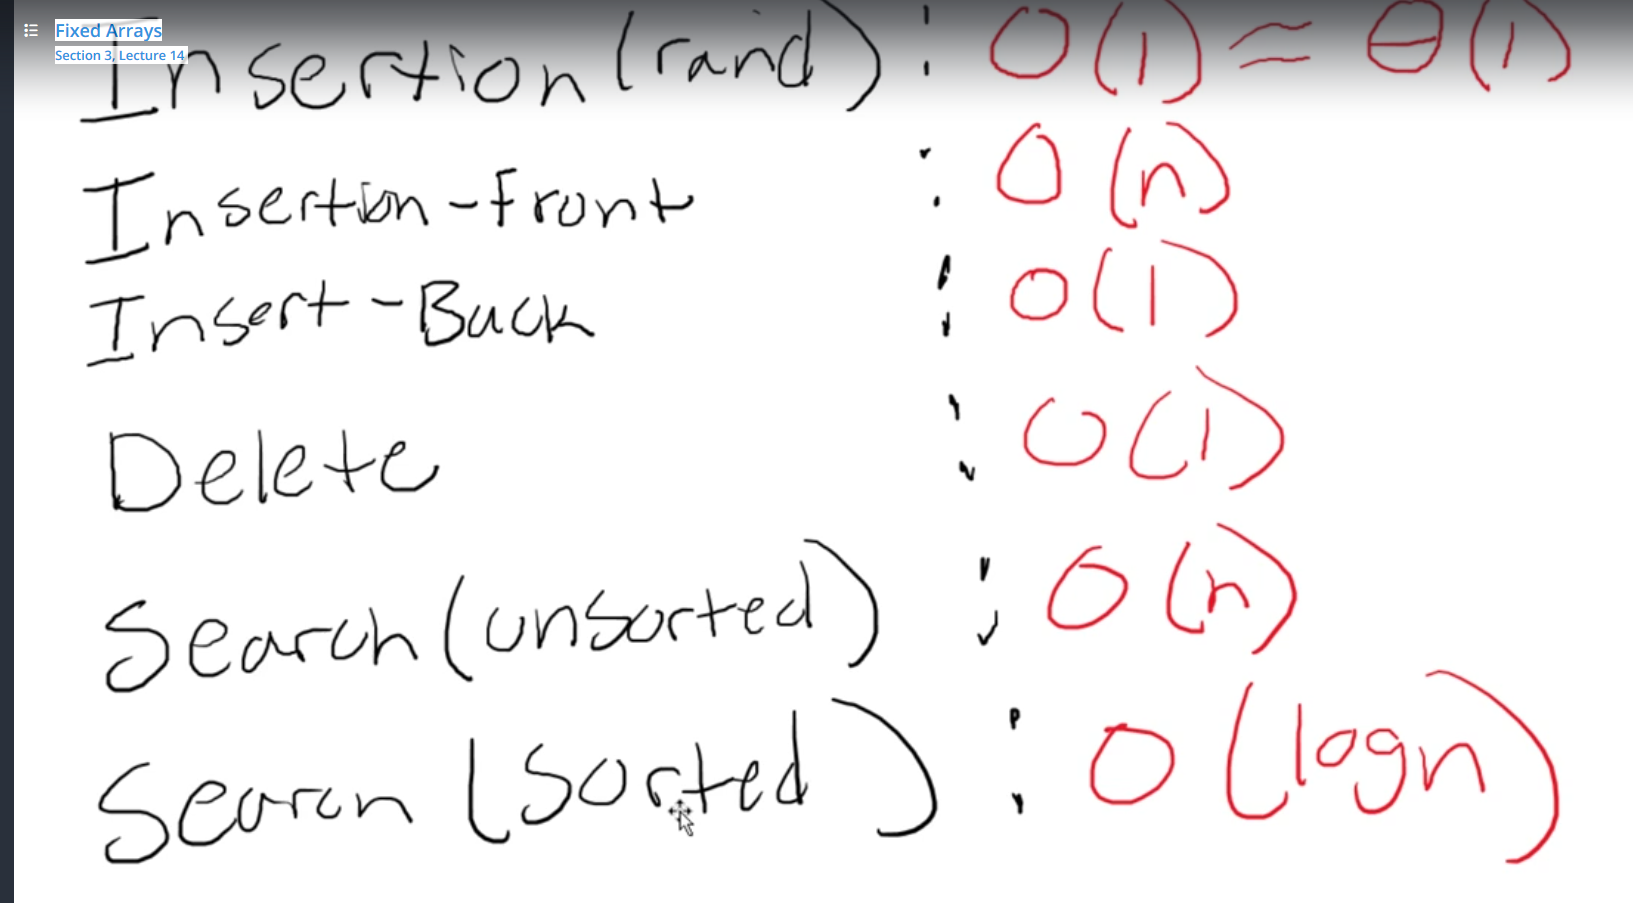 Fixed Arrays
Section 3, Lecture 14
Insertion (rand) : O(1) ≈ θ(1)
Insertion-Front : O(n)
Insert-Back : O(1)
Delete : O(1)
Search (unsorted) : O(n)
Search (sorted) : O(logn)